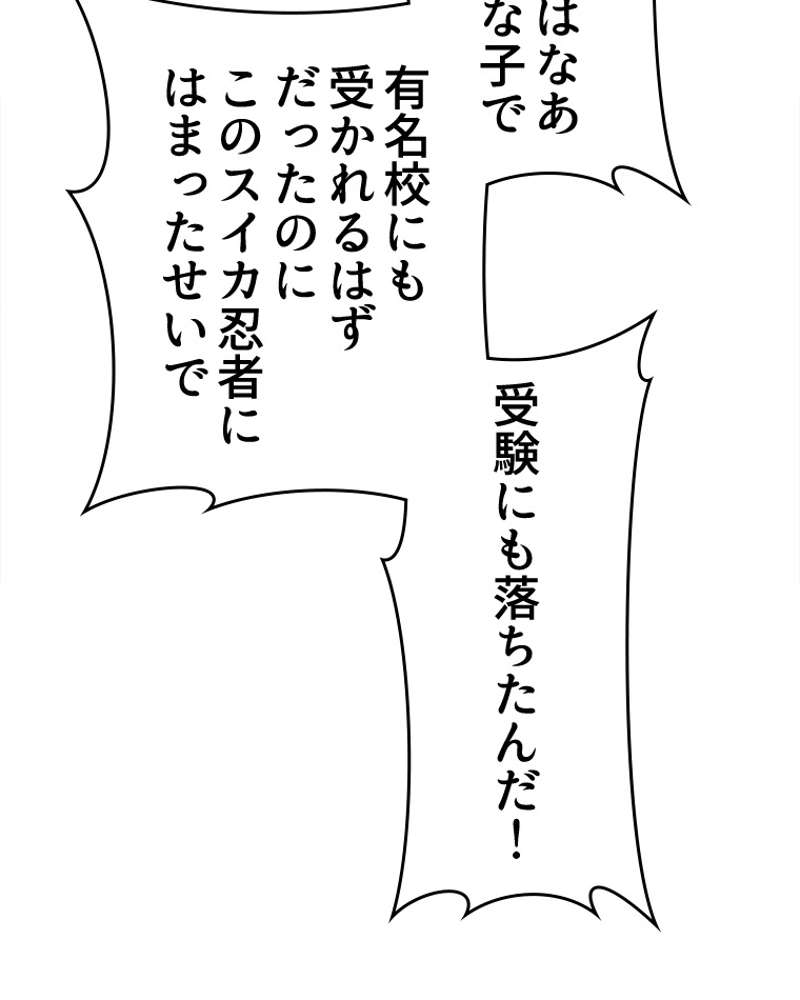 はなあ
な子で
有名校にも
受かれるはず
だったのに
このスイカ忍者に
はまったせいで
受験にも落ちたんだ！